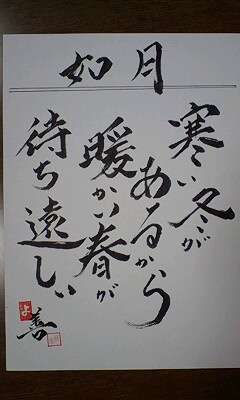 如月
寒い冬が
あるから
暖かい春が
待ち遠しい
善
よ